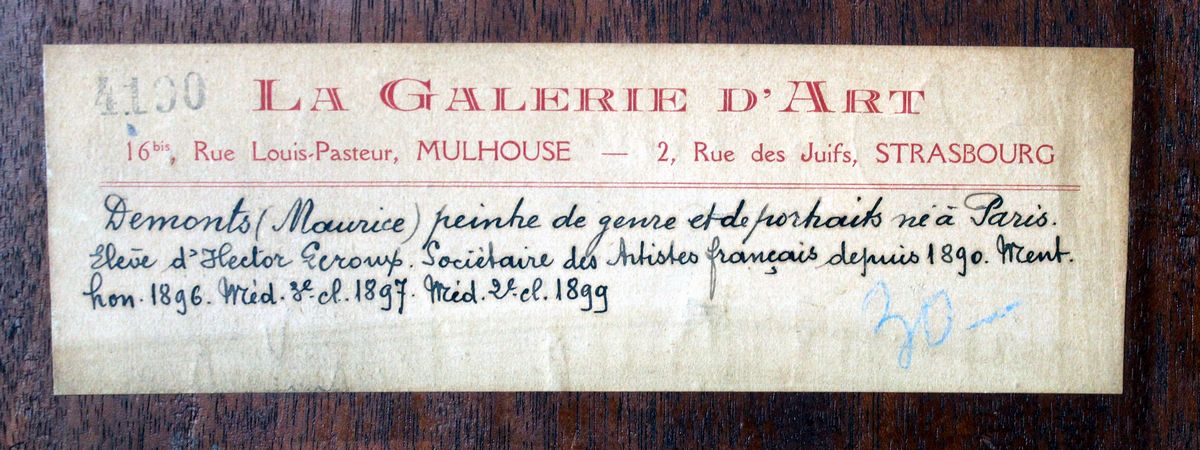 4190
LA GALERIE D'ART
16bis, Rue Louis-Pasteur, MULHOUSE — 2, Rue des Juifs, STRASBOURG
Demonts (Maurice) peintre de genre et de portraits né à Paris.
Elève d'Hector Leroux. Sociétaire des Artistes français depuis 1890. Ment.
hon. 1896. Méd. 3e cl. 1897. Méd. 2e cl. 1899
30—